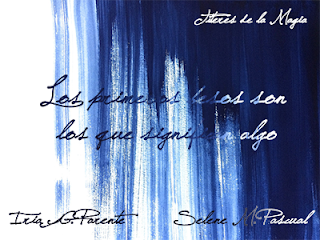 Títeres de la Magia
Los primeros besos son
los que significan algo
Iria G. Parente
Selene M. Pascual